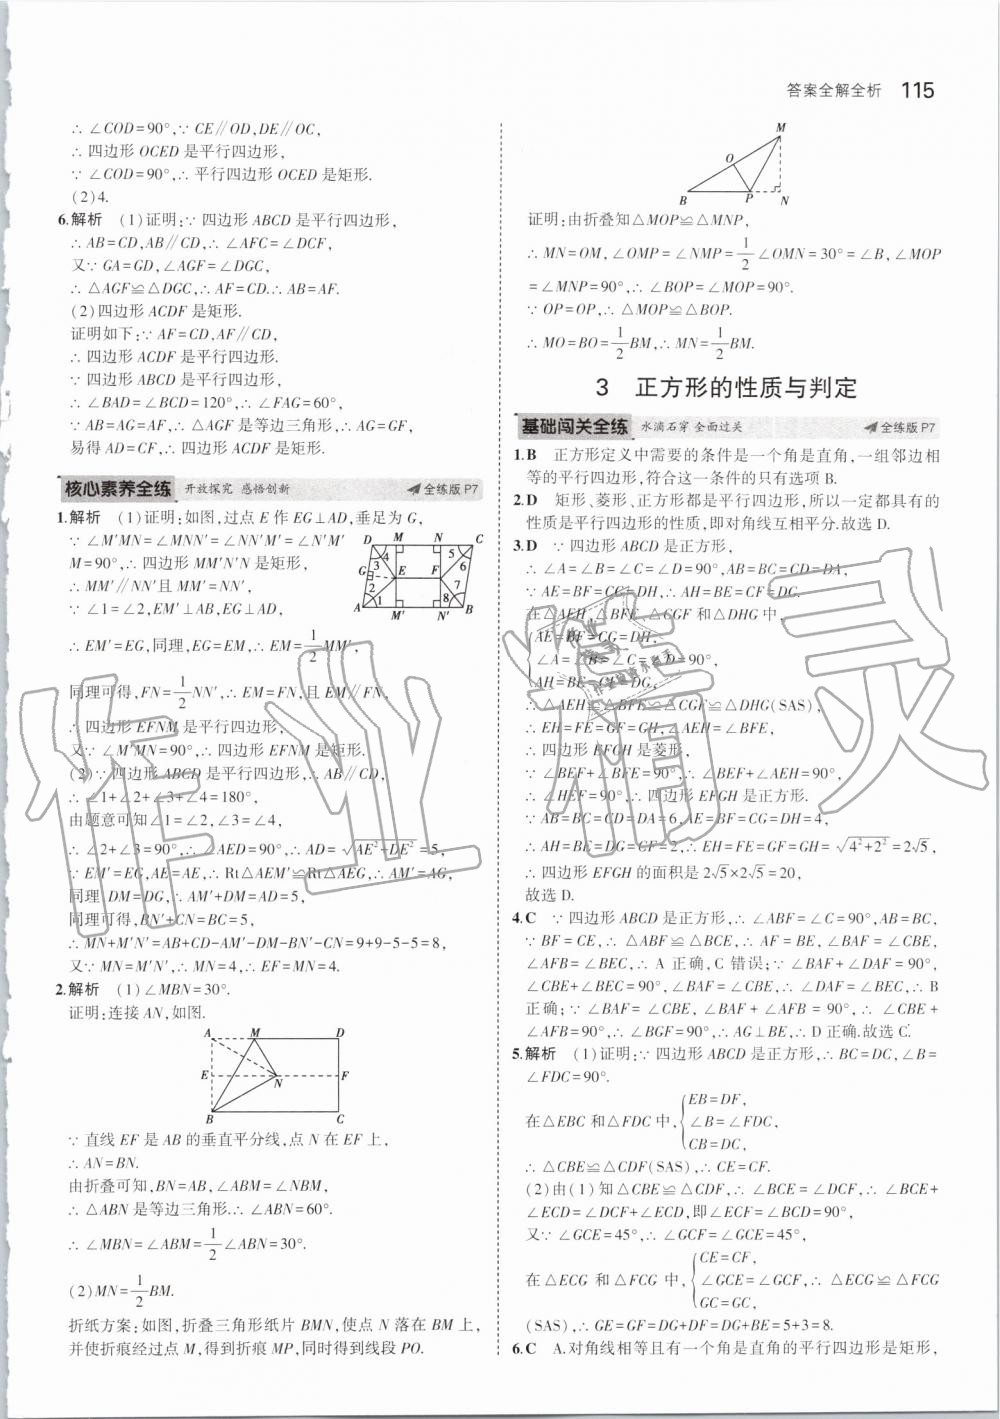 答案全解全析 115
∴ ∠COD=90°,∵ CE∥OD,DE∥OC,
∴ 四边形 OCED 是平行四边形,
∵ ∠COD=90°,∴ 平行四边形 OCED 是矩形.
(2)4.
6.解析 (1)证明:∵ 四边形 ABCD 是平行四边形,
∴ AB=CD,AB∥CD,∴ ∠AFC=∠DCF,
又∵ GA=GD,∠AGF=∠DGC,
∴ △AGF≌△DGC,∴ AF=CD.∴ AB=AF.
(2)四边形 ACDF 是矩形.
证明如下:∵ AF=CD,AF∥CD,
∴ 四边形 ACDF 是平行四边形.
∵ 四边形 ABCD 是平行四边形,
∴ ∠BAD=∠BCD=120°,∴ ∠FAG=60°,
∵ AB=AG=AF,∴ △AFG 是等边三角形,∴ AG=GF,
易得 AD=CF,∴ 四边形 ACDF 是矩形.
核心素养全练 开放探究 感悟创新 全练版 P7
1.解析 (1)证明:如图,过点 E 作 EG⊥AD,垂足为 G,
∵ ∠M′MN=∠MNN′=∠NN′M′=∠N′M′
M=90°,∴ 四边形 MM′N′N 是矩形,
∴ MM′∥NN′且 MM′=NN′,
∵ ∠1=∠2,EM′⊥AB,EG⊥AD,
D M N C
4 5
3 6
G E F
2 7
1 8
A M′ N′ B
∴ EM′=EG,同理,EG=EM,∴ EM=1/2MM′,
同理可得,FN=1/2NN′,∴ EM=FN,且 EM∥FN,
∴ 四边形 EFNM 是平行四边形,
又∵ ∠M′MN=90°,∴ 四边形 EFNM 是矩形.
(2)∵ 四边形 ABCD 是平行四边形,∴ AB∥CD,
∴ ∠1+∠2+∠3+∠4=180°,
由题意可知∠1=∠2,∠3=∠4,
∴ ∠2+∠3=90°,∴ ∠AED=90°,∴ AD=√(AE²+DE²)=5,
∵ EM′=EG,AE=AE,∴ Rt△AEM′≌Rt△AEG,∴ AM′=AG,
同理,DM=DG,∴ AM′+DM=AD=5,
同理可得,BN′+CN=BC=5,
∴ MN+M′N′=AB+CD-AM′-DM-BN′-CN=9+9-5-5=8,
又∵ MN=M′N′,∴ MN=4,∴ EF=MN=4.
2.解析 (1)∠MBN=30°.
证明:连接 AN,如图.
A M D
E N F
B C
∵ 直线 EF 是 AB 的垂直平分线,点 N 在 EF 上,
∴ AN=BN.
由折叠可知,BN=AB,∠ABM=∠NBM,
∴ △ABN 是等边三角形.∴ ∠ABN=60°.
∴ ∠MBN=∠ABM=1/2∠ABN=30°.
(2)MN=1/2BM.
折纸方案:如图,折叠三角形纸片 BMN,使点 N 落在 BM 上,
并使折痕经过点 M,得到折痕 MP,同时得到线段 PO.
M
O
B P N
证明:由折叠知△MOP≌△MNP,
∴ MN=OM,∠OMP=∠NMP=1/2∠OMN=30°=∠B,∠MOP
=∠MNP=90°,∴ ∠BOP=∠MOP=90°.
∵ OP=OP,∴ △MOP≌△BOP.
∴ MO=BO=1/2BM,∴ MN=1/2BM.
3 正方形的性质与判定
基础闯关全练 水滴石穿 全面过关 全练版 P7
1.B 正方形定义中需要的条件是一个角是直角,一组邻边相
等的平行四边形,符合这一条件的只有选项 B.
2.D 矩形、菱形、正方形都是平行四边形,所以一定都具有的
性质是平行四边形的性质,即对角线互相平分.故选 D.
3.D ∵ 四边形 ABCD 是正方形,
∴ ∠A=∠B=∠C=∠D=90°,AB=BC=CD=DA,
∵ AE=BF=CG=DH,∴ AH=BE=CF=DG.
在△AEH、△BFE、△CGF 和△DHG 中,
AE=BF=CG=DH,
∠A=∠B=∠C=∠D=90°,
AH=BE=CF=DG,
∴ △AEH≌△BFE≌△CGF≌△DHG(SAS),
∴ EH=FE=GF=GH,∠AEH=∠BFE,
∴ 四边形 EFGH 是菱形,
∵ ∠BEF+∠BFE=90°,∴ ∠BEF+∠AEH=90°,
∴ ∠HEF=90°,∴ 四边形 EFGH 是正方形.
∵ AB=BC=CD=DA=6,AE=BF=CG=DH=4,
∴ AH=BE=DG=CF=2,∴ EH=FE=GF=GH=√(4²+2²)=2√5,
∴ 四边形 EFGH 的面积是 2√5×2√5=20,
故选 D.
4.C ∵ 四边形 ABCD 是正方形,∴ ∠ABF=∠C=90°,AB=BC,
∵ BF=CE,∴ △ABF≌△BCE,∴ AF=BE,∠BAF=∠CBE,
∠AFB=∠BEC,∴ A 正确,C 错误;∵ ∠BAF+∠DAF=90°,
∠CBE+∠BEC=90°,∠BAF=∠CBE,∴ ∠DAF=∠BEC,∴ B
正确;∵ ∠BAF=∠CBE,∠BAF+∠AFB=90°,∴ ∠CBE+
∠AFB=90°,∴ ∠BGF=90°,∴ AG⊥BE,∴ D 正确.故选 C.
5.解析 (1)证明:∵ 四边形 ABCD 是正方形,∴ BC=DC,∠B=
∠FDC=90°.
EB=DF,
在△EBC 和△FDC 中,∠B=∠FDC,
CB=DC,
∴ △CBE≌△CDF(SAS),∴ CE=CF.
(2)由(1)知△CBE≌△CDF,∴ ∠BCE=∠DCF,∴ ∠BCE+
∠ECD=∠DCF+∠ECD,即∠ECF=∠BCD=90°,
又∵ ∠GCE=45°,∴ ∠GCF=∠GCE=45°.
CE=CF,
在△ECG 和△FCG 中,∠GCE=∠GCF,∴ △ECG≌△FCG
GC=GC,
(SAS),∴ GE=GF=DG+DF=DG+BE=5+3=8.
6.C A.对角线相等且有一个角是直角的平行四边形是矩形,
作业精灵